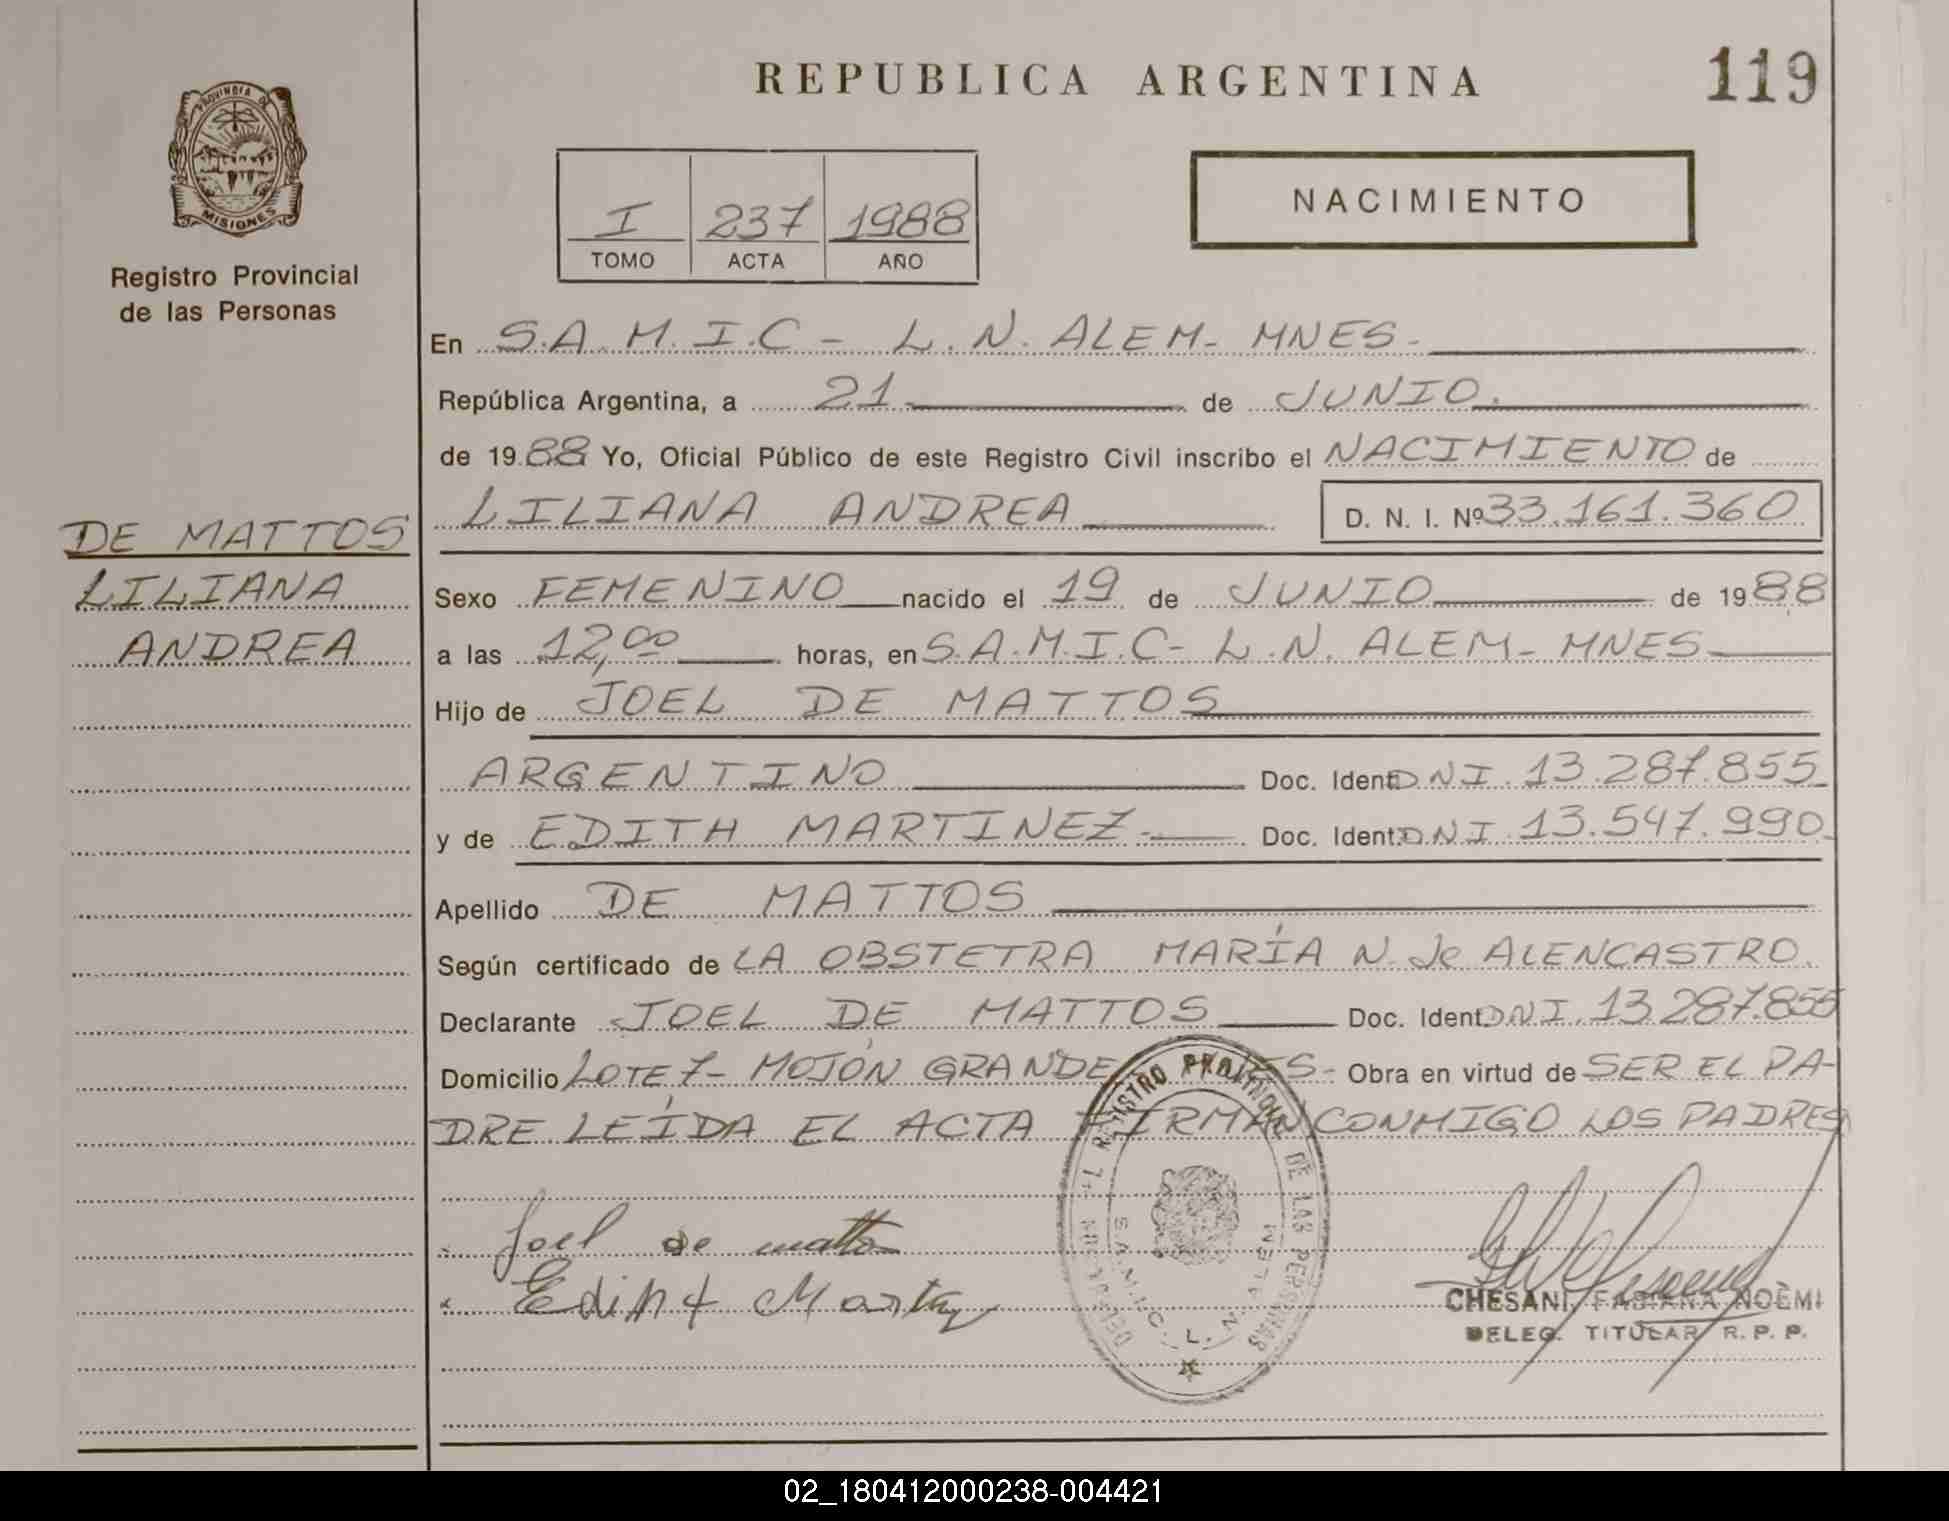 REPUBLICA ARGENTINA
119
PROVINCIA DE
MISIONES
Registro Provincial
de las Personas
I 237 1988
TOMO ACTA AÑO
NACIMIENTO
En S.A.M.I.C - L.N. ALEM - MNES -
República Argentina, a 21 de JUNIO.
de 1988 Yo, Oficial Público de este Registro Civil inscribo el NACIMIENTO de
LILIANA ANDREA D. N. I. Nº 33.161.360
DE MATTOS
LILIANA
ANDREA
Sexo FEMENINO nacido el 19 de JUNIO de 1988
a las 12,00 horas, en S.A.M.I.C - L.N. ALEM - MNES -
Hijo de JOEL DE MATTOS
ARGENTINO Doc. Ident. DNI. 13.287.855
y de EDITH MARTINEZ - Doc. Ident. DNI. 13.547.990
Apellido DE MATTOS
Según certificado de LA OBSTETRA MARÍA N. de ALENCASTRO.
Declarante JOEL DE MATTOS Doc. Ident. DNI. 13.287.855
Domicilio LOTE 7 - MOJÓN GRANDE - MNES - Obra en virtud de SER EL PA-
DRE LEÍDA EL ACTA FIRMAN CONMIGO LOS PADRES
Joel de matto
Edith Martinez
REGISTRO PROVINCIAL DE LAS PERSONAS
S.A.M.I.C. L. N. ALEM
CHESANI, FABIANA NOÈMI
DELEG. TITULAR R. P. P.
02_180412000238-004421